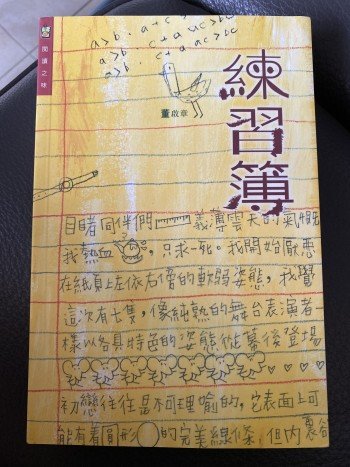 閱讀之味
a>b. a+c
a>b. c+a ac>bc
a>b. c+a uc>bc
練習簿
董啟章
目睹同伴們義薄雲天的氣慨
我熱血,只求一死。我開始厭惡
在紙頁上左依右偎的軟弱姿態,我覺
這次有七隻,像純熟的舞台表演者
樣以各具特色的姿態從幕後登場
初戀往往是不可理喻的,它表面上可
能有着圓形的完美線條,但內裏